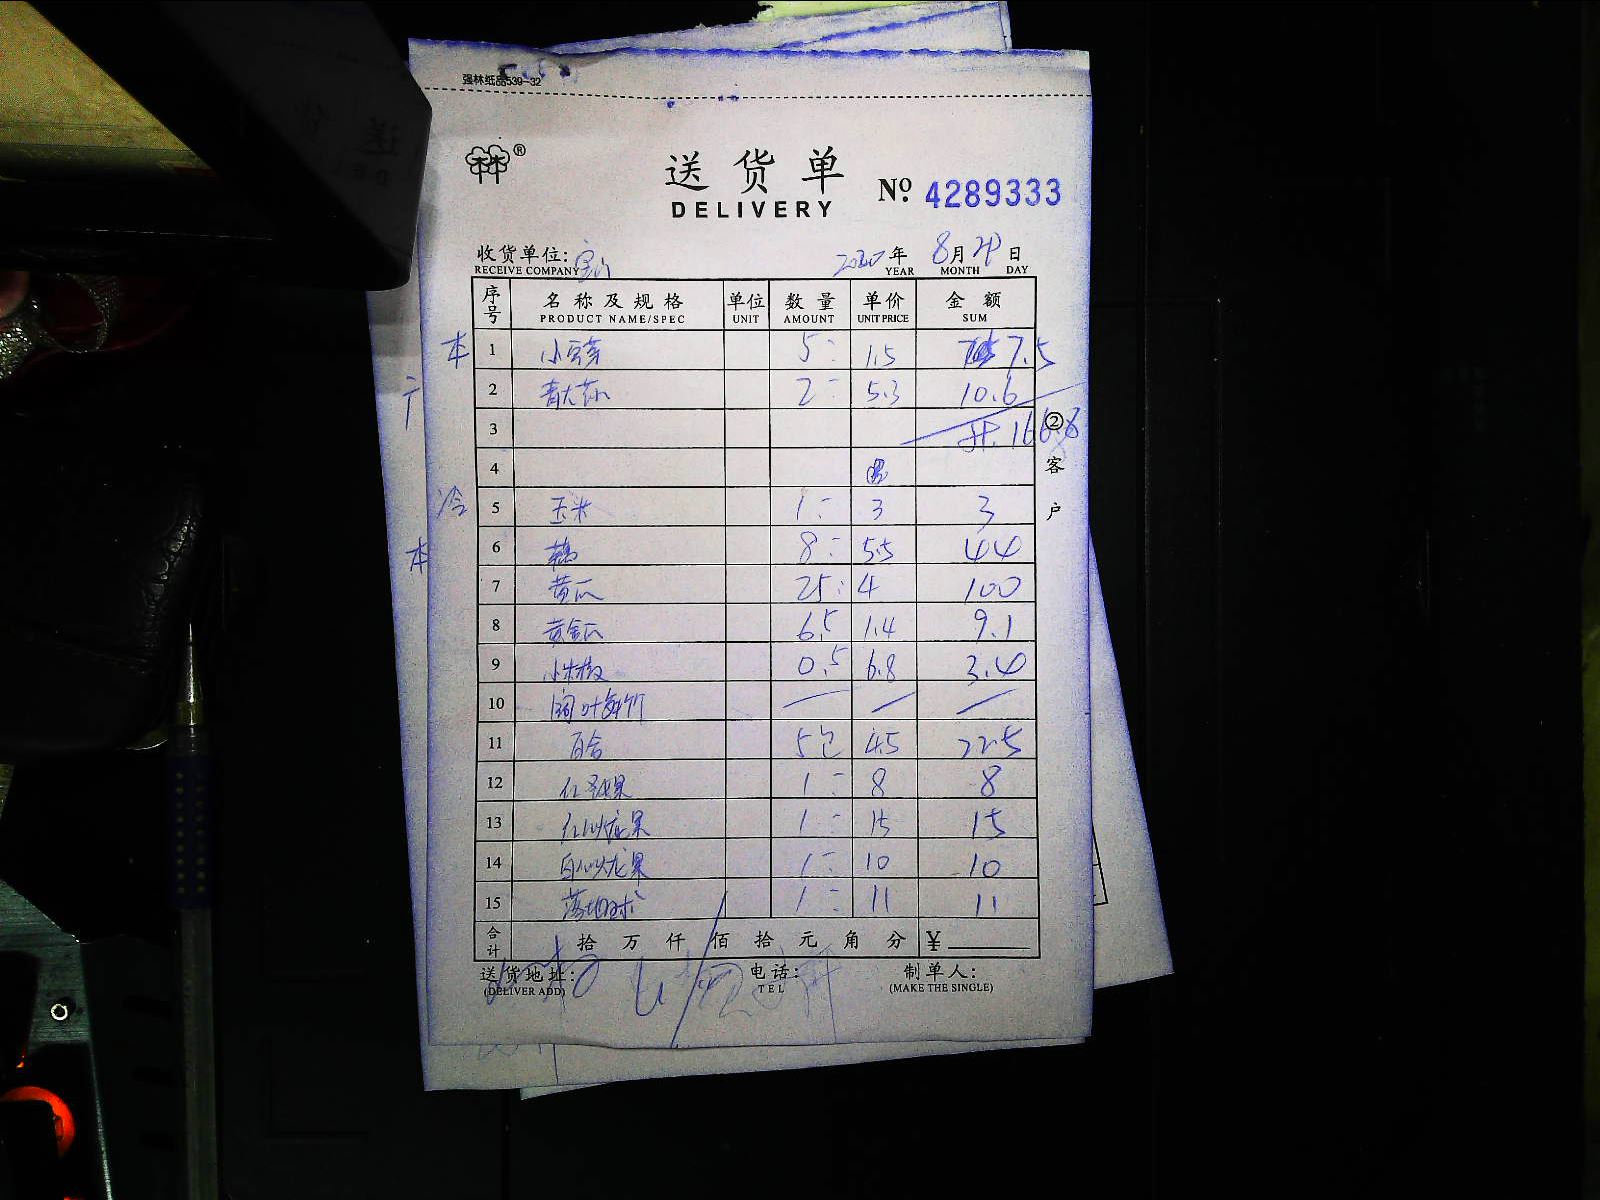 强林纸品539-32
林®
送货单
DELIVERY
No. 4289333
收货单位:
RECEIVE COMPANY
年 8月 日
YEAR MONTH DAY
序号 名称及规格 单位 数量 单价 金额
PRODUCT NAME/SPEC UNIT AMOUNT UNIT PRICE SUM
本 1 小豆芽 5 1.5 7.5
2 青大 2 5.3 10.6
3 166.8
4
冷 5 玉米 1 3 3
本 6 8 5.5 44
7 黄瓜 25 4 100
8 黄金瓜 6.5 1.4 9.1
9 小米椒 0.5 6.8 3.4
10 阔叶 竹
11 百合 5包 4.5 22.5
12 红 果 1 8 8
13 红心火龙果 1 15 15
14 白心火龙果 1 10 10
15 1 11 11
②客户
合计 拾万仟佰拾元角分 ¥
送货地址: 电话: 制单人:
(DELIVER ADD) TEL (MAKE THE SINGLE)